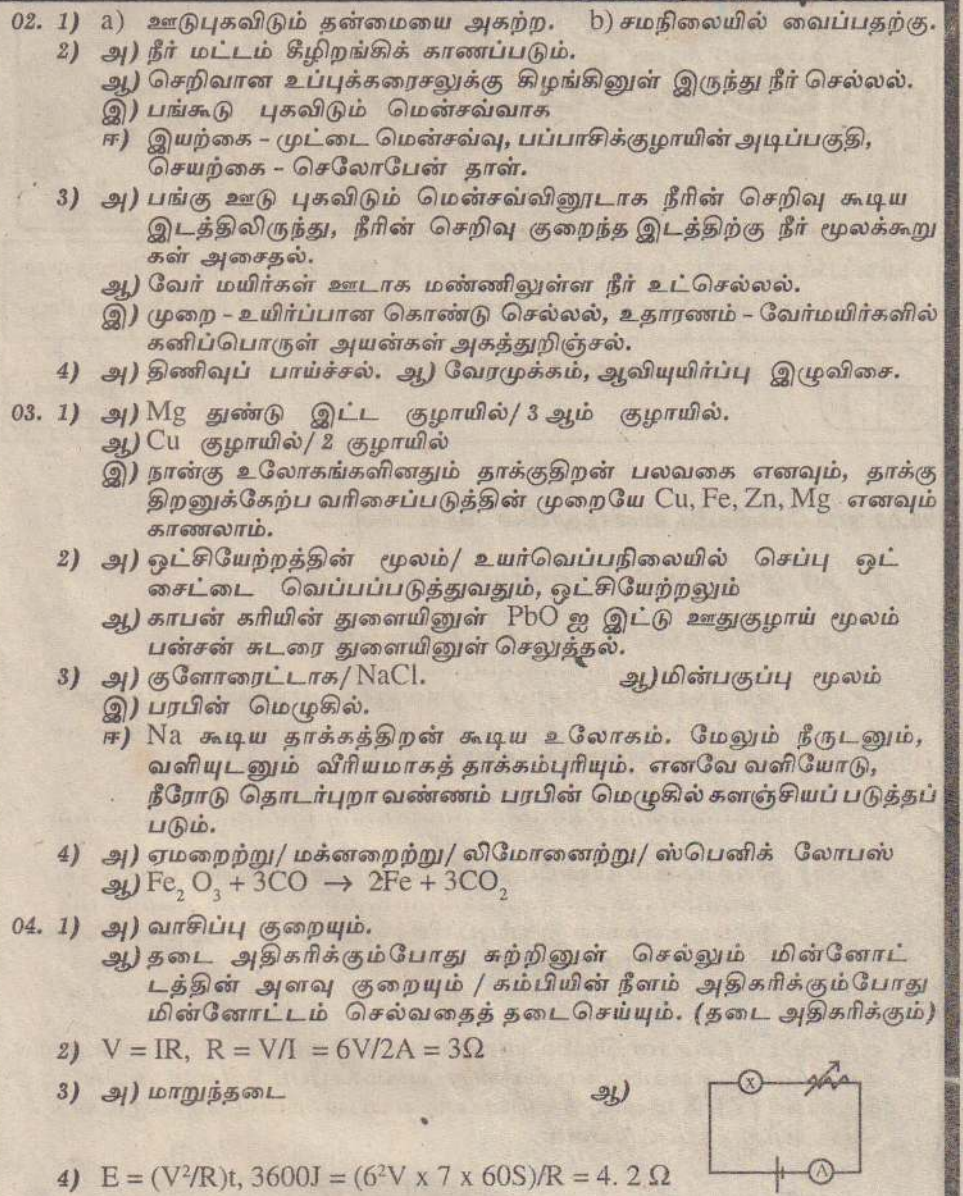 02. 1) a) ஊடுபுகவிடும் தன்மையை அகற்ற. b) சமநிலையில் வைப்பதற்கு.
2) அ) நீர் மட்டம் கீழிறங்கிக் காணப்படும்.
ஆ) செறிவான உப்புக்கரைசலுக்கு கிழங்கினுள் இருந்து நீர் செல்லல்.
இ) பங்கூடு புகவிடும் மென்சவ்வாக
ஈ) இயற்கை - முட்டை மென்சவ்வு, பப்பாசிக்குழாயின் அடிப்பகுதி,
செயற்கை - செலோபேன் தாள்.
3) அ) பங்கு ஊடு புகவிடும் மென்சவ்வினூடாக நீரின் செறிவு கூடிய
இடத்திலிருந்து, நீரின் செறிவு குறைந்த இடத்திற்கு நீர் மூலக்கூறு
கள் அசைதல்.
ஆ) வேர் மயிர்கள் ஊடாக மண்ணிலுள்ள நீர் உட்செல்லல்.
இ) முறை - உயிர்ப்பான கொண்டு செல்லல், உதாரணம் - வேர்மயிர்களில்
கனிப்பொருள் அயன்கள் அகத்துறிஞ்சல்.
4) அ) திணிவுப் பாய்ச்சல். ஆ) வேரமுக்கம், ஆவியுயிர்ப்பு இழுவிசை.
03. 1) அ) Mg துண்டு இட்ட குழாயில்/ 3 ஆம் குழாயில்.
ஆ) Cu குழாயில்/ 2 குழாயில்
இ) நான்கு உலோகங்களினதும் தாக்குதிறன் பலவகை எனவும், தாக்கு
திறனுக்கேற்ப வரிசைப்படுத்தின் முறையே Cu, Fe, Zn, Mg எனவும்
காணலாம்.
2) அ) ஒட்சியேற்றத்தின் மூலம்/ உயர்வெப்பநிலையில் செப்பு ஒட்
சைட்டை வெப்பப்படுத்துவதும், ஒட்சியேற்றலும்
ஆ) காபன் கரியின் துளையினுள் PbO ஐ இட்டு ஊதுகுழாய் மூலம்
பன்சன் சுடரை துளையினுள் செலுத்தல்.
3) அ) குளோரைட்டாக/ NaCl. ஆ)மின்பகுப்பு மூலம்
இ) பரபின் மெழுகில்.
ஈ) Na கூடிய தாக்கத்திறன் கூடிய உலோகம். மேலும் நீருடனும்,
வளியுடனும் வீரியமாகத் தாக்கம்புரியும். எனவே வளியோடு,
நீரோடு தொடர்புறா வண்ணம் பரபின் மெழுகில் களஞ்சியப் படுத்தப்
படும்.
4) அ) ஏமறைற்று/ மக்னறைற்று/ லிமோனைற்று/ ஸ்பெனிக் லோபஸ்
ஆ) Fe₂ O₃ + 3CO → 2Fe + 3CO₂
04. 1) அ) வாசிப்பு குறையும்.
ஆ) தடை அதிகரிக்கும்போது சுற்றினுள் செல்லும் மின்னோட்
டத்தின் அளவு குறையும் / கம்பியின் நீளம் அதிகரிக்கும்போது
மின்னோட்டம் செல்வதைத் தடைசெய்யும். (தடை அதிகரிக்கும்)
2) V = IR, R = V/I = 6V/2A = 3Ω
3) அ) மாறுந்தடை ஆ)
X
A
4) E = (V²/R)t, 3600J = (6²V x 7 x 60S)/R = 4. 2 Ω